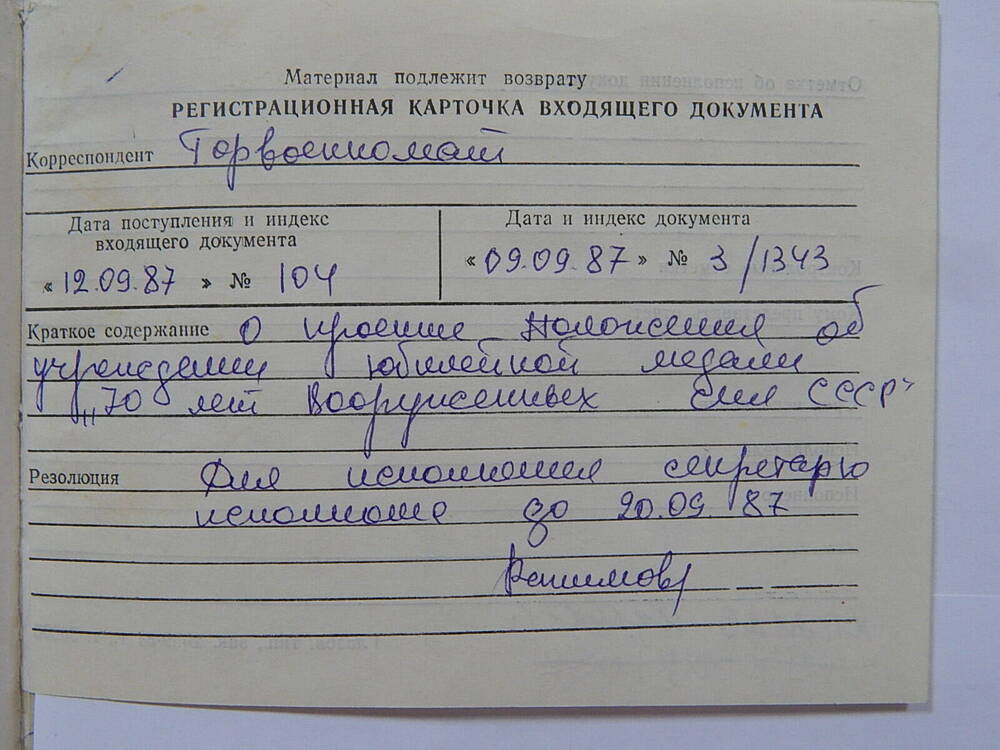 Материал подлежит возврату
РЕГИСТРАЦИОННАЯ КАРТОЧКА ВХОДЯЩЕГО ДОКУМЕНТА
Корреспондент Горвоенкомат
Дата поступления и индекс входящего документа
«12.09.87» № 104
Дата и индекс документа
«09.09.87» № 3/1343
Краткое содержание О Положения об
учреждении юбилейной медали
„70 лет Вооруженных Сил СССР"
Резолюция Для исполнения секретарю
до 20.09.87